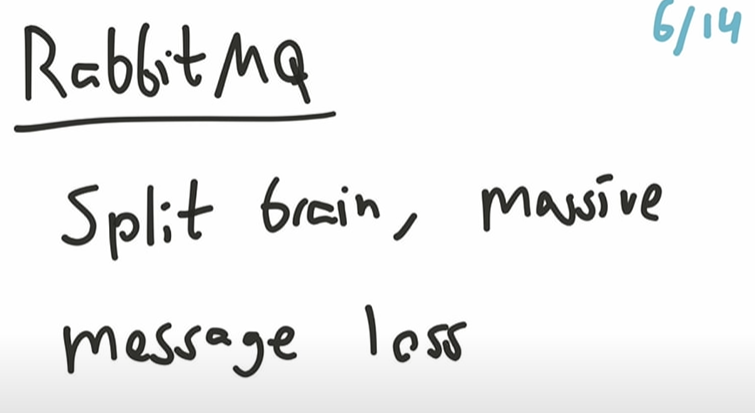 6/14
RabbitMQ
Split brain, massive
message loss